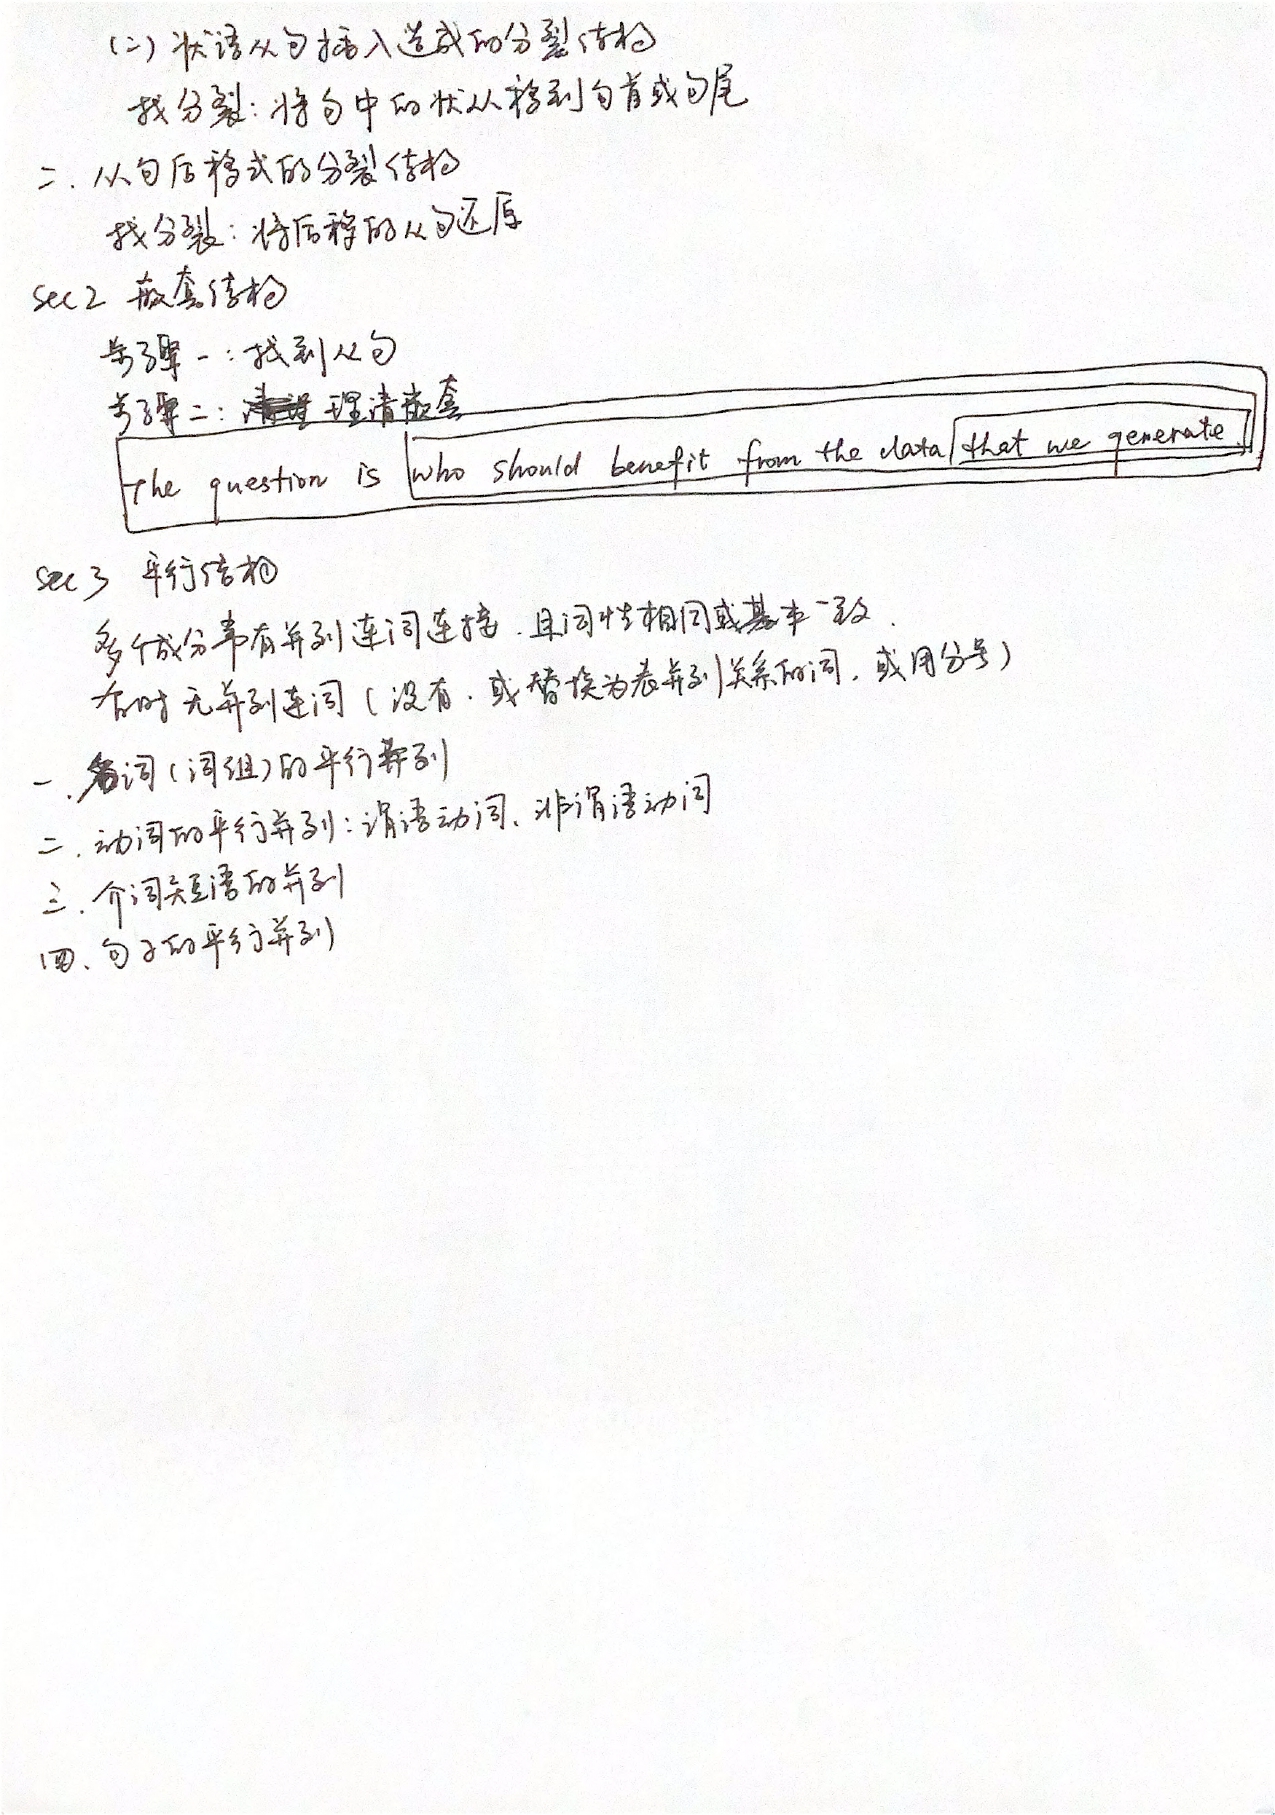 (二) 状语从句插入造成的分裂结构
找分裂: 将句中的状从移到句首或句尾
二. 从句后移式的分裂结构
找分裂: 将后移的从句还原
Sec 2 嵌套结构
步骤一: 找到从句
步骤二: 理清嵌套
The question is who should benefit from the data that we generate.
Sec 3 平行结构
多个成分常有并列连词连接, 且词性相同或基本一致.
有时无并列连词 (没有, 或替换为表并列关系的词, 或用分号)
一. 名词(词组)的平行并列
二. 动词的平行并列: 谓语动词、非谓语动词
三. 介词短语的并列
四、句子的平行并列